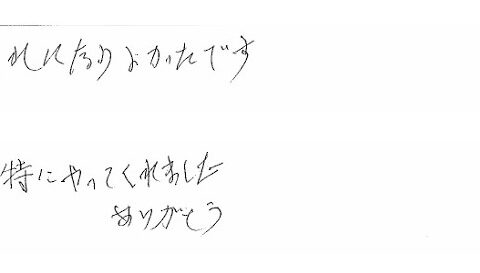 れになりよかったです
特にやってくれました
ありがとう